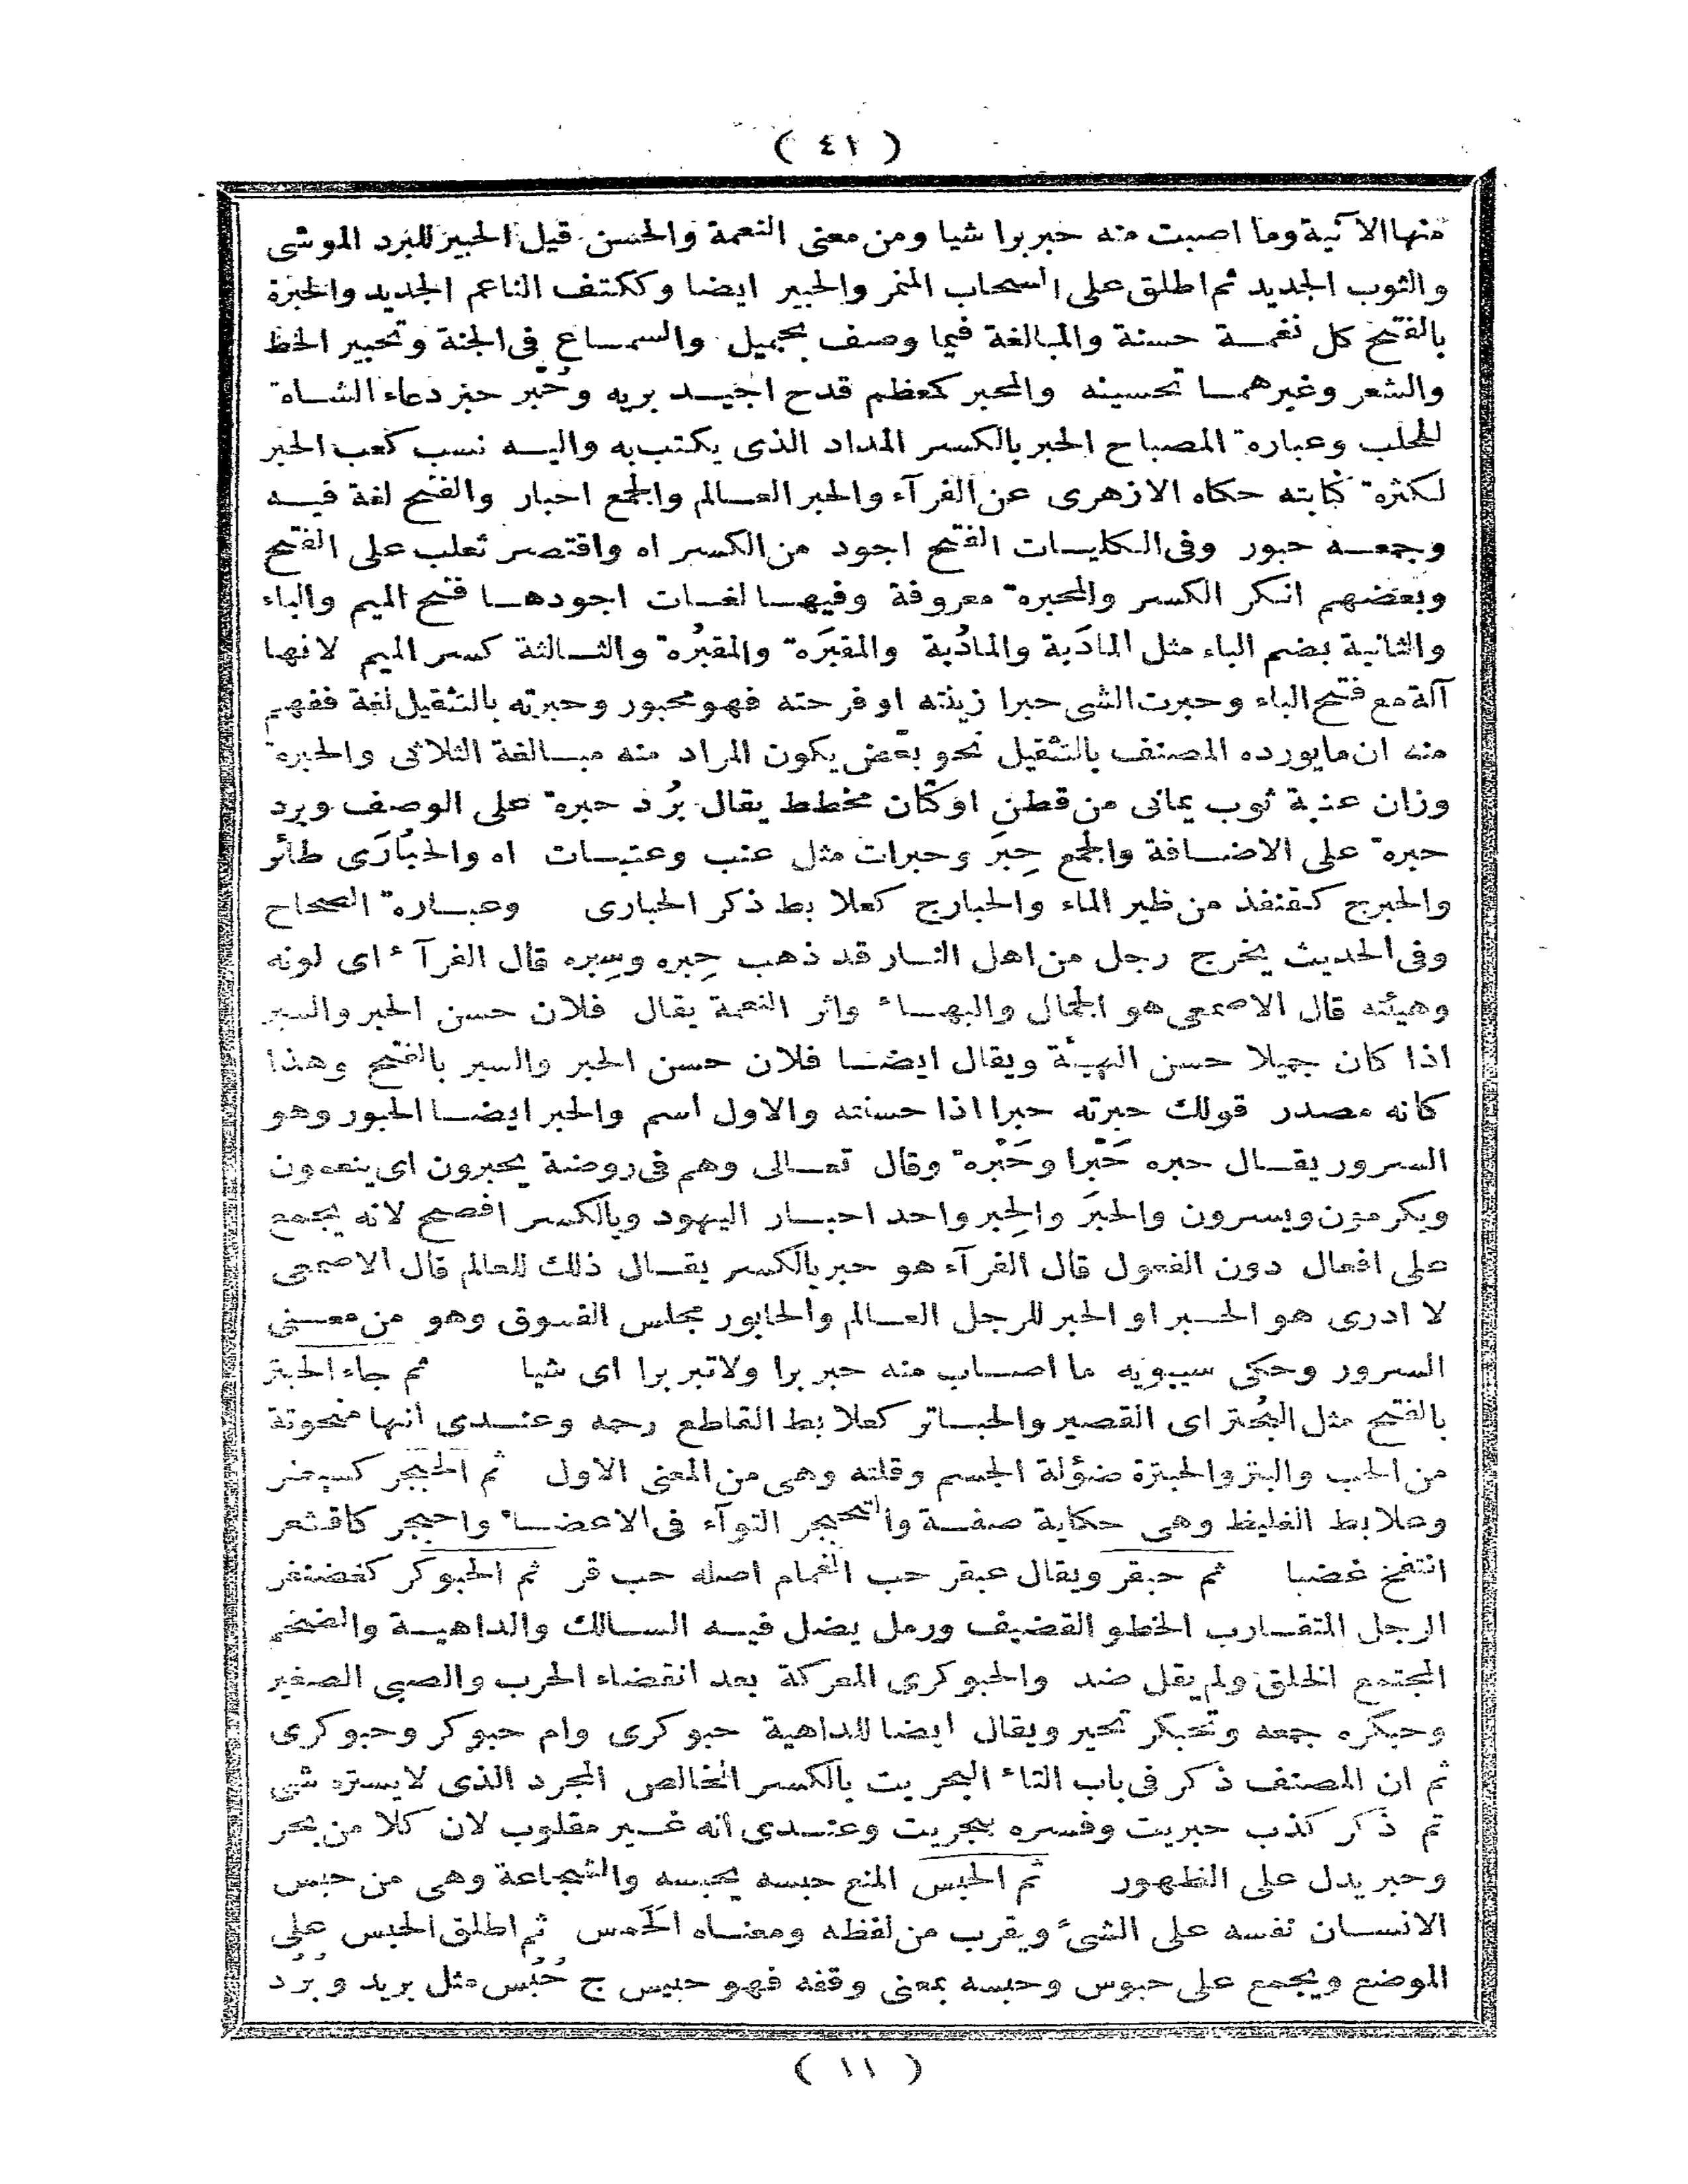 ( ٤١ )
منها الآنية وما اصبت منه حبربرا شيا ومن معنى النعمة والحسن قيل الحبير للبرد الموشى
والثوب الجديد ثم اطلق على السحاب المنمر والحبير ايضا وككتف الناعم الجديد والحبرة
بالفتح كل نغمة حسنة والمبالغة فيما وصف بجميل والسماع فى الجنة وتحبير الخط
والشعر وغيرهما تحسينه والمحبر كمعظم قدح اجيد بريه وحُبّر حبر دعاء الشاة
للحلب وعبارة المصباح الحبر بالكسر المداد الذى يكتب به واليه نسب كعب الحبر
لكثرة كتابته حكاه الازهرى عن الفرآء والحبر العالم والجمع احبار والفتح لغة فيه
وجمعه حبور وفى الكليات الفتح اجود من الكسر اه واقتصر ثعلب على الفتح
وبعضهم انكر الكسر والمحبرة معروفة وفيها لغات اجودها فتح الميم والباء
والثانية بضم الباء مثل المادَبة والمادُبة والمقبَرة والمقبُرة والثالثة كسر الميم لانها
آلة مع فتح الباء وحبرت الشى حبرا زينته او فرحته فهو محبور وحبرته بالتثقيل لغة ففهم
منه ان ما يورده المصنف بالتثقيل نحو بعّض يكون المراد منه مبالغة الثلاثى والحبرة
وزان عنبة ثوب يمانى من قطن او كتّان مخطط يقال بُرد حبرة على الوصف وبرد
حبرة على الاضافة والجمع حِبَر وحبرات مثل عنب وعنبات اه والحُبارَى طائر
والحبرج كقنفذ من طير الماء والحبارج كعلابط ذكر الحبارى وعبارة الصحاح
وفى الحديث يخرج رجل من اهل النار قد ذهب حِبره وسِبره قال الفرآء اى لونه
وهيئته قال الاصمعى هو الجمال والبهاء واثر النعمة يقال فلان حسن الحبر والسبر
اذا كان جميلا حسن الهيئة ويقال ايضا فلان حسن الحبر والسبر بالفتح وهذا
كانه مصدر قولك حبرته حبرا اذا حسنته والاول اسم والحبر ايضا الحبور وهو
السرور يقال حبره حَبْرا وحَبْرة وقال تعالى وهم فى روضة يحبرون اى ينعمون
ويكرمون ويسرون والحبَر والحِبر واحد احبار اليهود وبالكسر افصح لانه يجمع
على افعال دون الفعول قال الفرآء هو حبر بالكسر يقال ذلك للعالم قال الاصمعى
لا ادرى هو الحبر او الحبر للرجل العالم والحابور مجلس الفسوق وهو من معنى
السرور وحكى سيبويه ما اصاب منه حبربرا ولا تبربرا اى شيا ثم جاء الحبتر
بالفتح مثل البُحتر اى القصير والحباتر كعلابط القاطع رحمه وعندى انها منحوتة
من الحب والبتر والحبترة ضؤلة الجسم وقلته وهى من المعنى الاول ثم الحبجر كسبطر
وعلابط الغليظ وهى حكاية صفة والتحبجر التوآء فى الاعضاء واحبجر كاقشعر
انتفخ غضبا ثم حبقر ويقال عبقر حب الغمام اصله حب قر ثم الحبوكر كغضنفر
الرجل المتقارب الخطو القضيف ورمل يضل فيه السالك والداهية والضخم
المجتمع الخلق ولم يقل ضد والحبوكرى المعركة بعد انقضاء الحرب والصبى الصغير
وحبكره جمعه وتحبكر تحير ويقال ايضا للداهية حبوكرى وام حبوكر وحبوكرى
ثم ان المصنف ذكر فى باب التاء البحريت بالكسر الخالص المجرد الذى لا يستره شى
ثم ذكر كذب حبريت وفسره ببحريت وعندى أنه غير مقلوب لان كلا من بحر
وحبر يدل على الظهور ثم الحبس المنع حبسه يحبسه والشجاعة وهى من حبس
الانسان نفسه على الشىء ويقرب من لفظه ومعناه الحَمس ثم اطلق الحبس على
الموضع ويجمع على حبوس وحبسه بمعنى وقفه فهو حبيس ج حُبُس مثل بريد وبُرُد
( ١١ )